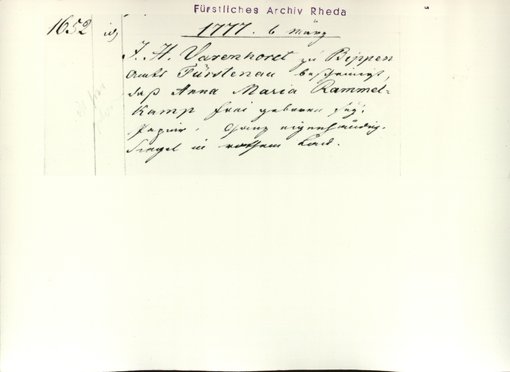 Fürstliches Archiv Rheda
1652 1777. 6 März
J. H. Varenhorst zu Bippen
Amts Fürstenau bescheinigt,
daß Anna Maria Rammel-
kamp frei geboren sey.
Papier. Ganz eigenhändig.
Siegel in rothem Lack.